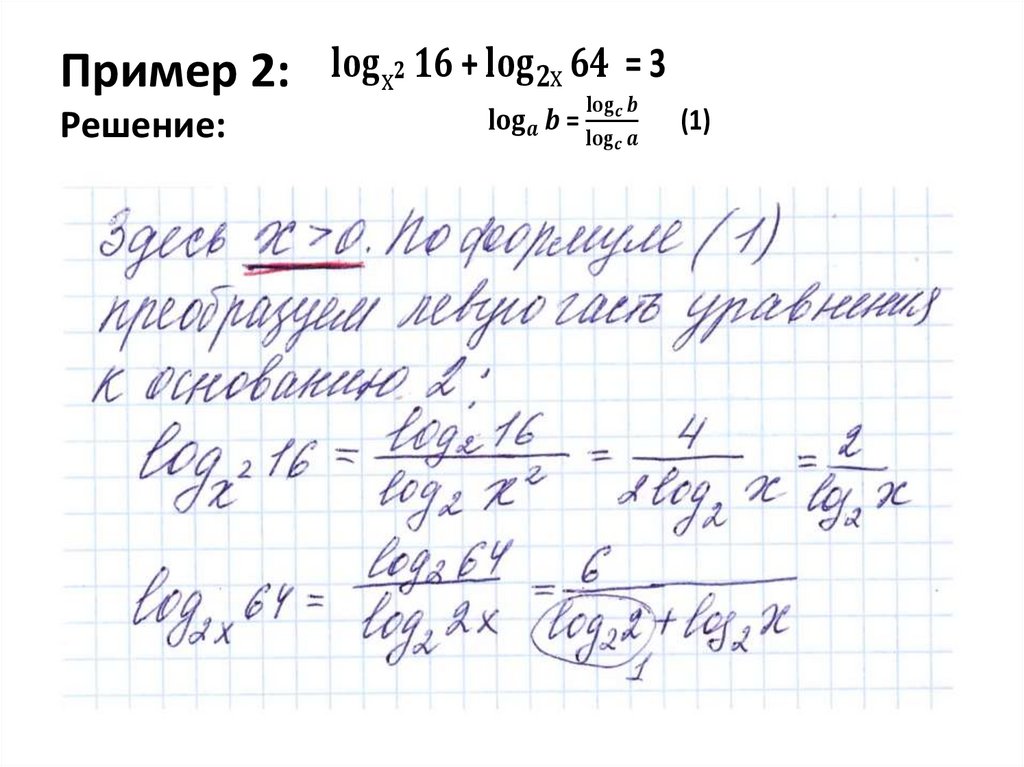 Пример 2: logₓ² 16 + log₂ₓ 64 = 3
Решение: logₐ b = log_c b / log_c a (1)
Здесь x > 0. По формуле (1)
преобразуем левую часть уравнения
к основанию 2:
logₓ² 16 = log₂ 16 / log₂ x² = 4 / 2 log₂ x = 2 / log₂ x
log₂ₓ 64 = log₂ 64 / log₂ 2x = 6 / log₂ 2 + log₂ x
1